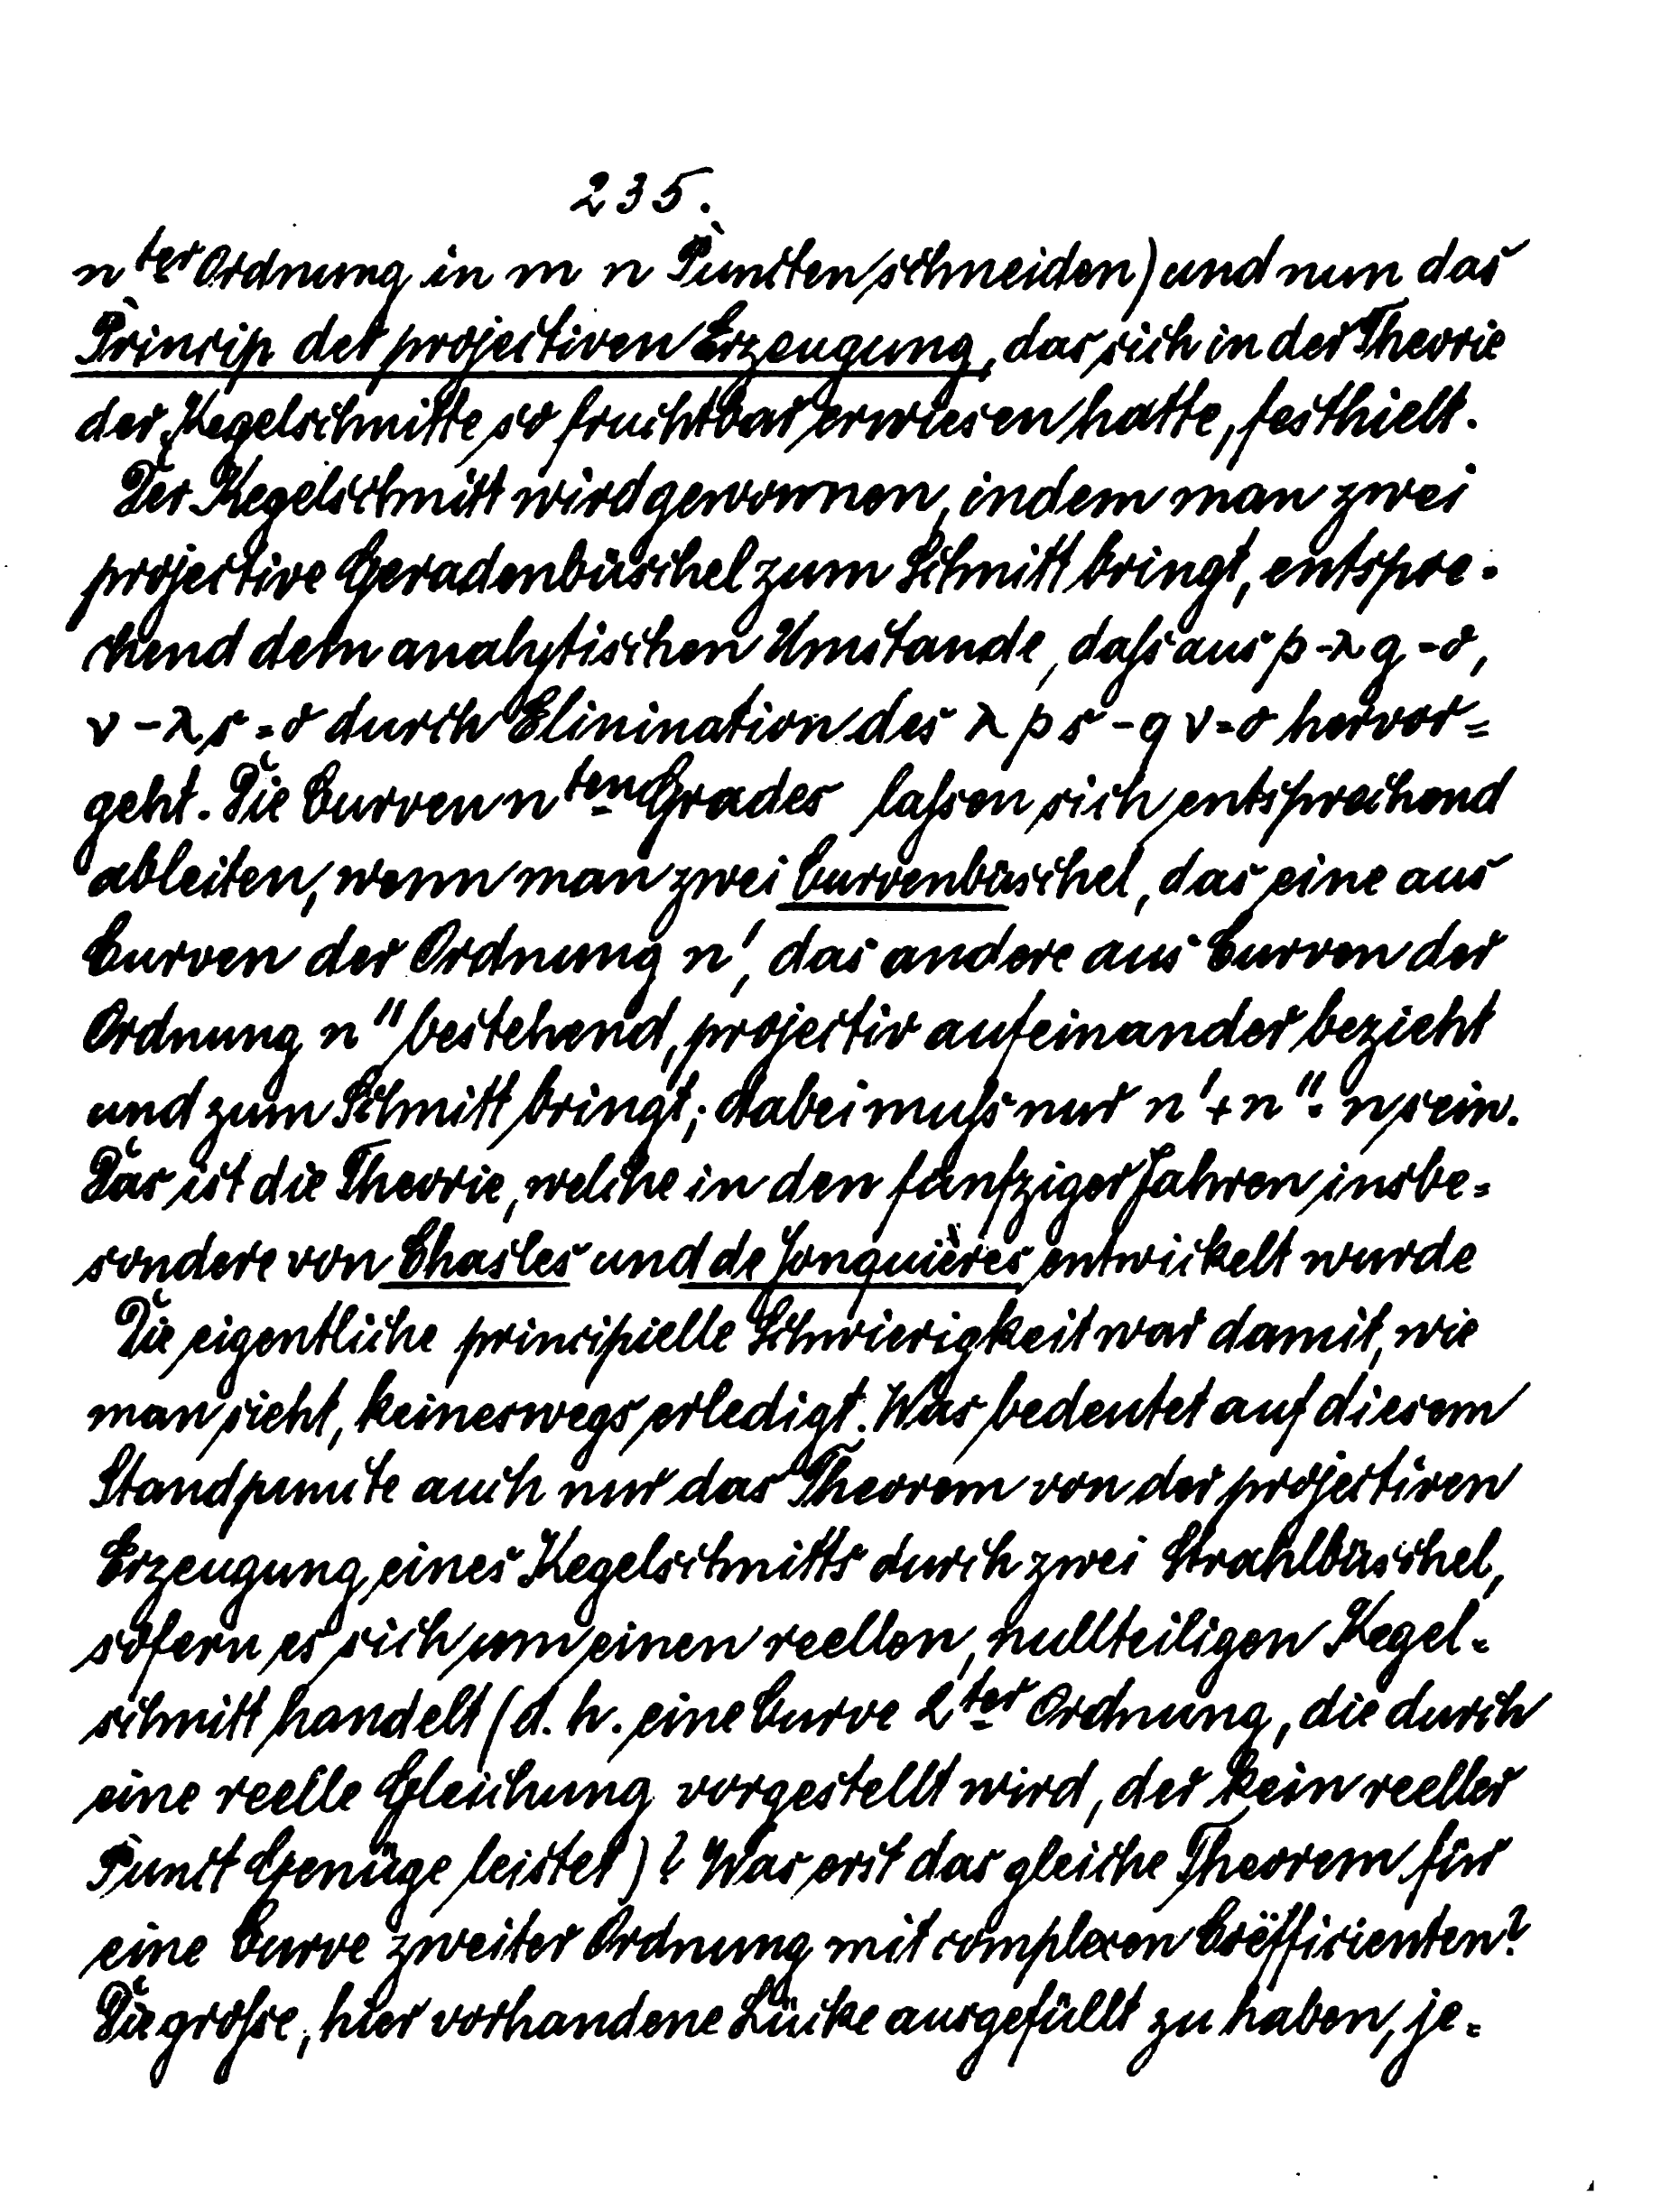 235.
n ter Ordnung in m n Puncten schneiden) und nun das
Princip der projectiven Erzeugung, das sich in der Theorie
der Kegelschnitte so fruchtbar erwiesen hatte, festhielt.
Der Kegelschnitt wird gewonnen, indem man zwei
projective Geradenbüschel zum Schnitt bringt, entspre-
chend dem analytischen Umstande, daſs aus p - λ q = o,
r - λ s = o durch Elinination des λ p s - q r = o hervor=
geht. Die Curven n ten Grades laſsen sich entsprechend
ableiten, wenn man zwei Curvenbüschel, das eine aus
Curven der Ordnung n', das andere aus Curven der
Ordnung n'' bestehend, projectiv aufeinander bezieht
und zum Schnitt bringt; dabei muſs nur n' + n'' = n sein.
Das ist die Theorie, welche in den fünfziger Jahren insbe=
sondere von Chasles und de Jonquières entwickelt wurde
Die eigentliche principielle Schwierigkeit war damit, wie
man sieht, keineswegs erledigt. Was bedeutet auf diesem
Standpuncte auch nur das Theorem von der projectiven
Erzeugung eines Kegelschnitts durch zwei Strahlbüschel,
sofern es sich um einen reellen, nullteiligen Kegel=
schnitt handelt (d. h. eine Curve 2 ter Ordnung, die durch
eine reelle Gleichung vorgestellt wird, der kein reeller
Punct Genüge leistet)? Was erst das gleiche Theorem für
eine Curve zweiter Ordnung mit complexen Coëfficienten?
Die groſse, hier vorhandene Lücke ausgefüllt zu haben, je=